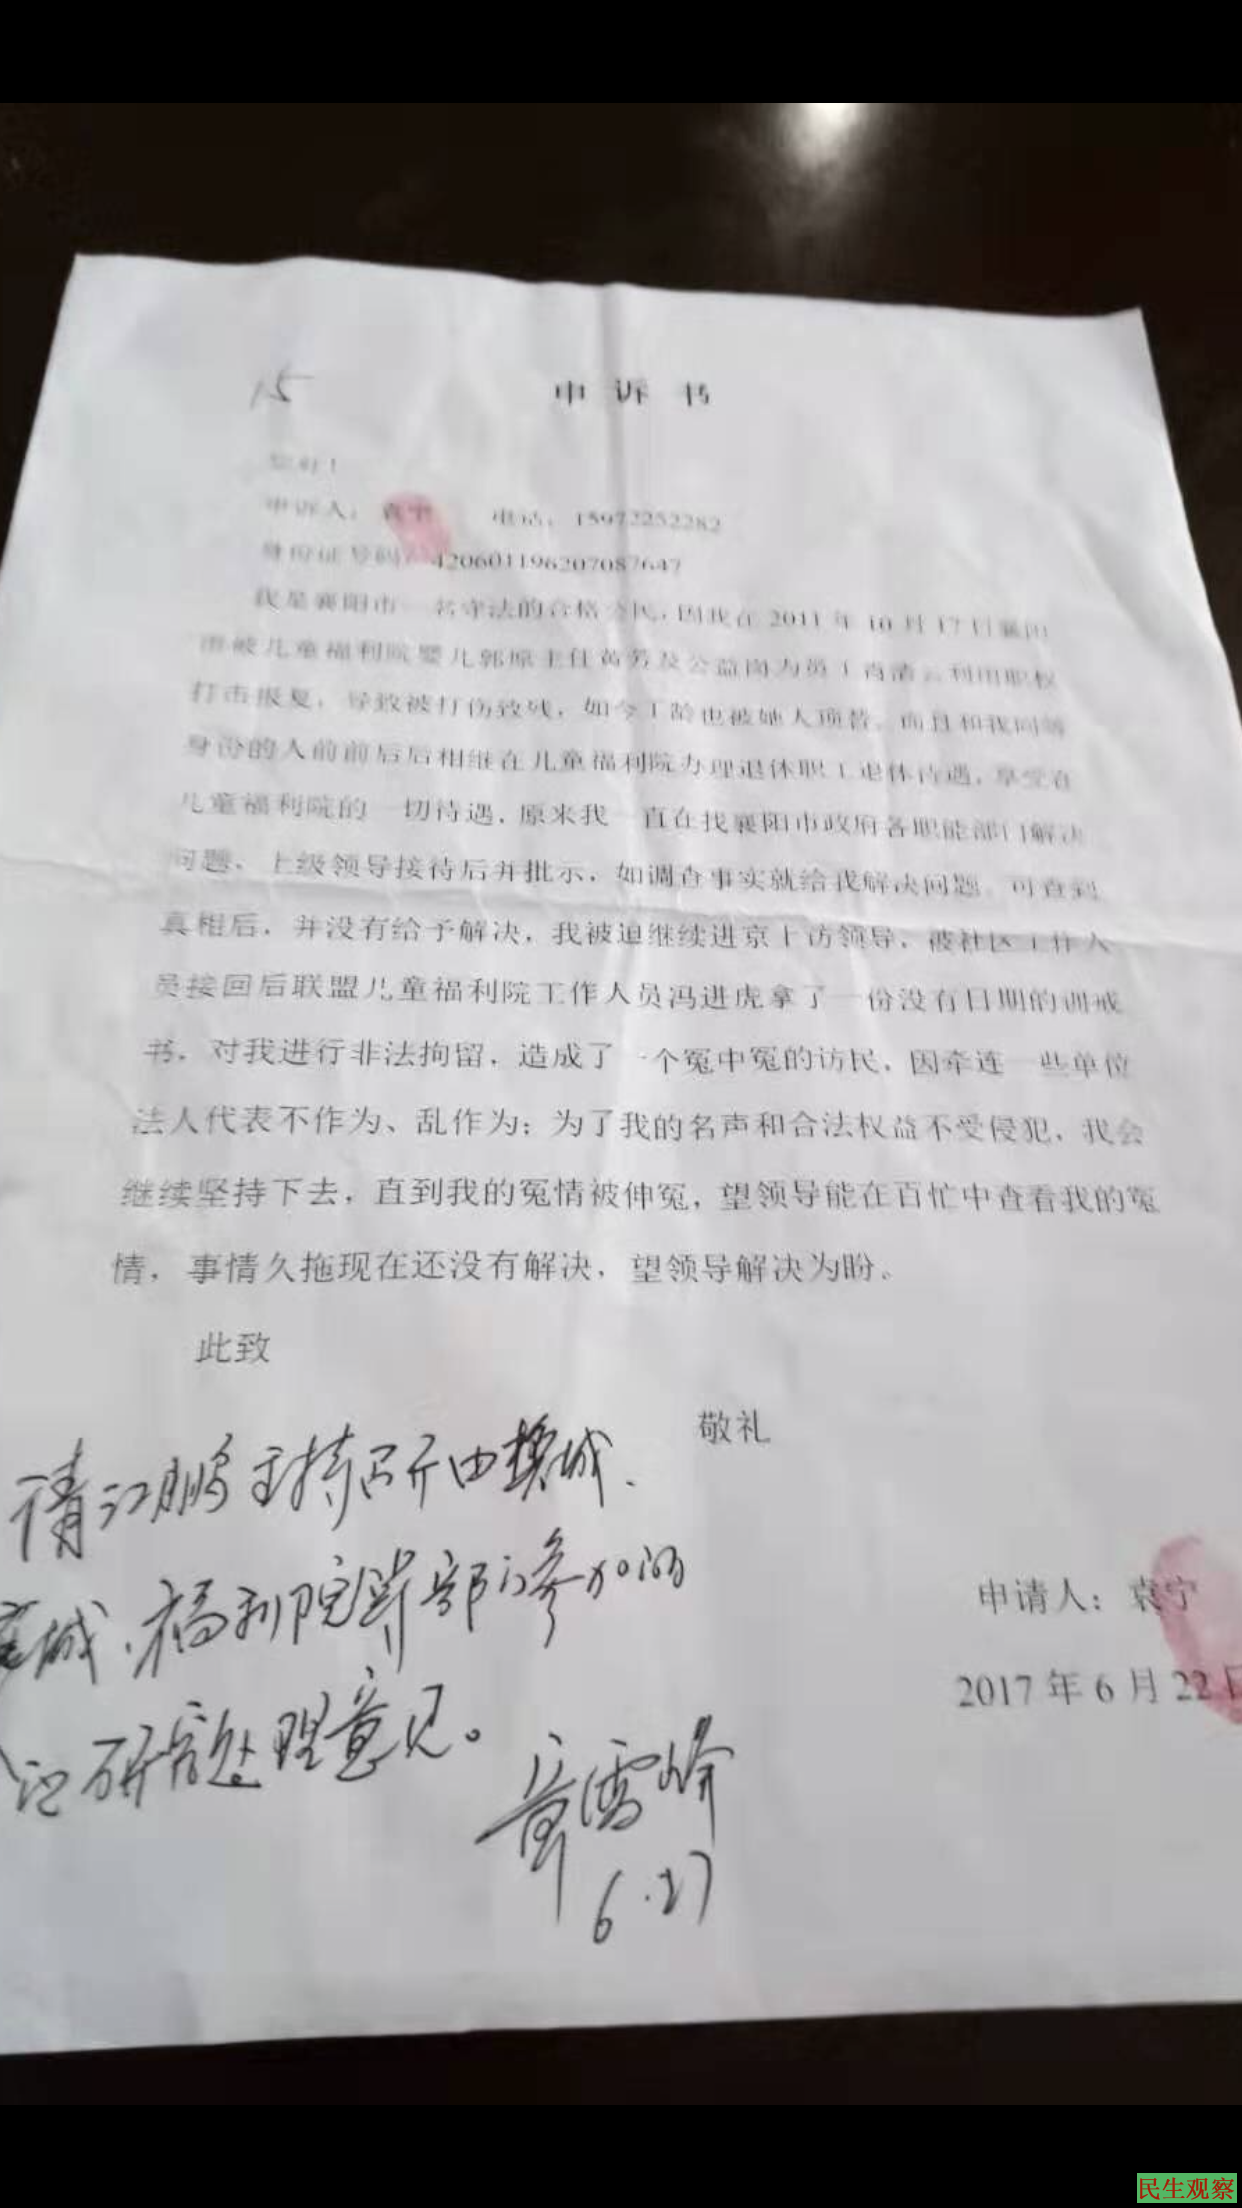 15
申诉书
您好！
申诉人：袁宁 电话：15972252282
身份证号码：420601196207087647
我是襄阳市一名守法的合格公民，因我在2011年10月17日襄阳
市被儿童福利院婴儿部原主任黄劳及公益岗为员工肖清云利用职权
打击报复，导致被打伤致残，如今工龄也被她人顶替，而且和我同等
身份的人前前后后相继在儿童福利院办理退休职工退休待遇，享受在
儿童福利院的一切待遇，原来我一直在找襄阳市政府各职能部门解决
问题，上级领导接待后并批示，如调查事实就给我解决问题，可查到
真相后，并没有给予解决，我被迫继续进京上访领导，被社区工作人
员接回后联盟儿童福利院工作人员冯进虎拿了一份没有日期的训戒
书，对我进行非法拘留，造成了一个冤中冤的访民，因牵连一些单位
法人代表不作为、乱作为；为了我的名声和合法权益不受侵犯，我会
继续坚持下去，直到我的冤情被伸冤，望领导能在百忙中查看我的冤
情，事情久拖现在还没有解决，望领导解决为盼。
此致
敬礼
请江鹏主持召开由樊城、
襄城、福利院等部门参加的
研究处理意见。
章雪峰
6.27
申请人：袁宁
2017年6月22日
民生观察